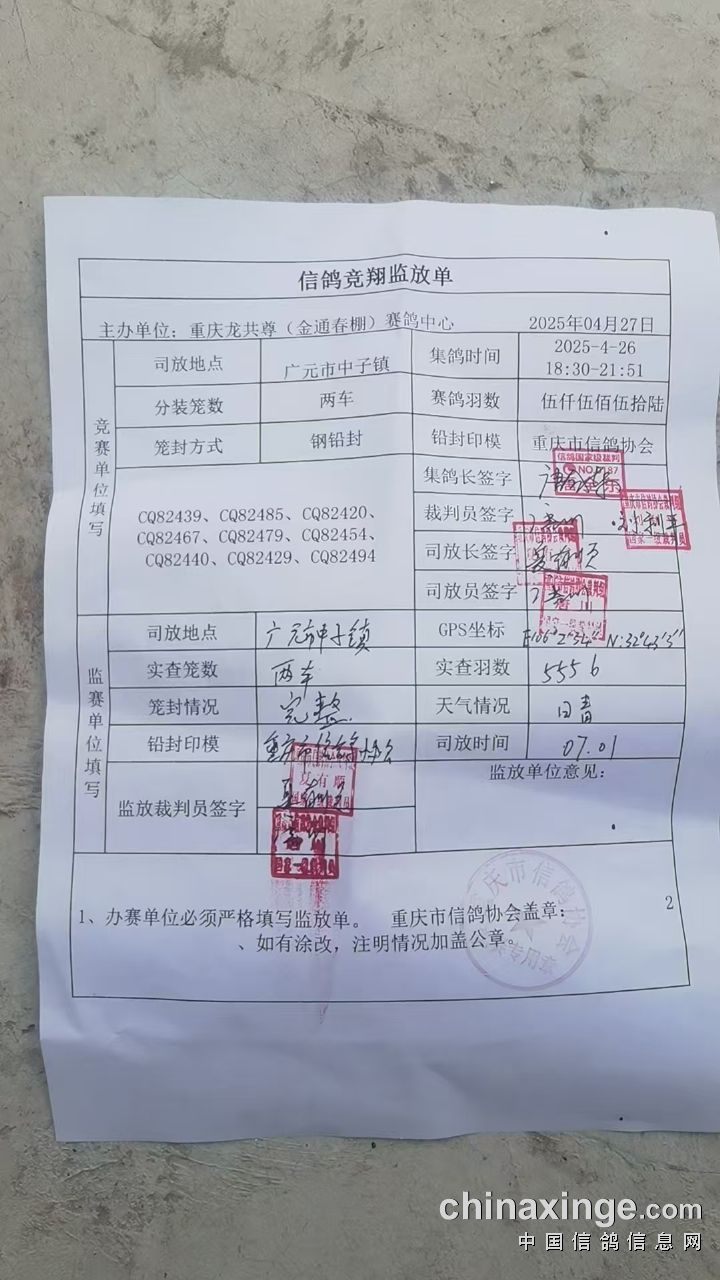 信鸽竞翔监放单
主办单位：重庆龙共尊（金通春棚）赛鸽中心 2025年04月27日
竞赛单位填写
司放地点 广元市中子镇 集鸽时间 2025-4-26
18:30-21:51
分装笼数 两车 赛鸽羽数 伍仟伍佰伍拾陆
笼封方式 钢铅封 铅封印模 重庆市信鸽协会
CQ82439、CQ82485、CQ82420、
CQ82467、CQ82479、CQ82454、
CQ82440、CQ82429、CQ82494
集鸽长签字
信鸽国家级裁判
裁判员签字
国家一级裁判员
司放长签字 夏有顺
司放员签字
监赛单位填写
司放地点 广元市中子镇 GPS坐标 E106°2′34″ N:32°43′3″
实查笼数 两车 实查羽数 5556
笼封情况 完整. 天气情况
铅封印模 重庆市信鸽协会 司放时间 07.01
监放裁判员签字 夏有顺 监放单位意见：
夏有顺
1、办赛单位必须严格填写监放单。 重庆市信鸽协会盖章： 2
、如有涂改，注明情况加盖公章。
重庆市信鸽协会
专用章
chinaxinge.com
中国信鸽信息网